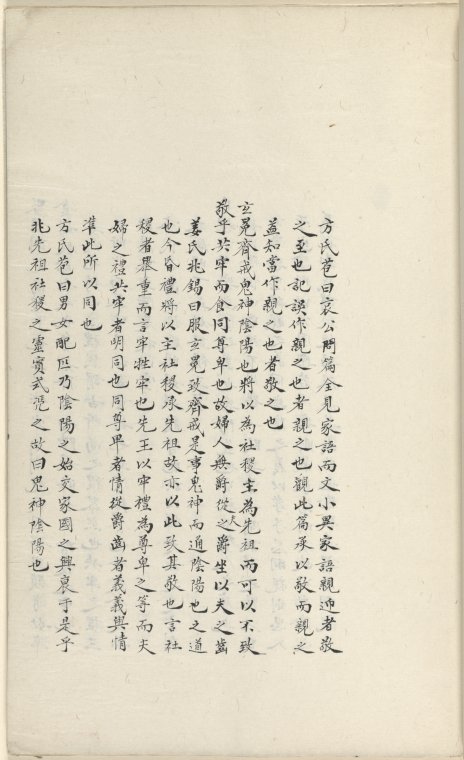 方氏苞曰哀公問篇全見家語而文小異家語親迎者敬
之至也記誤作親之也者親之也觀此篇承以敬而親之
益知當作親之也者敬之也
玄冕齊戒鬼神陰陽也將以為社稷主為先祖而可以不致
敬乎共牢而食同尊卑也故婦人無爵從夫之爵坐以夫之齒
姜氏兆錫曰服玄冕致齊戒是事鬼神而通陰陽也之道
也今昏禮將以主社稷承先祖故亦以此致其敬也言社
稷者舉重而言牢牲牢也先王以牢禮為尊卑之等而夫
婦之禮共牢者明同也同尊卑者情從爵齒者義義與情
準此所以同也
方氏苞曰男女配匹乃陰陽之始交家國之興衰于是乎
兆先祖社稷之靈實式凭之故曰鬼神陰陽也